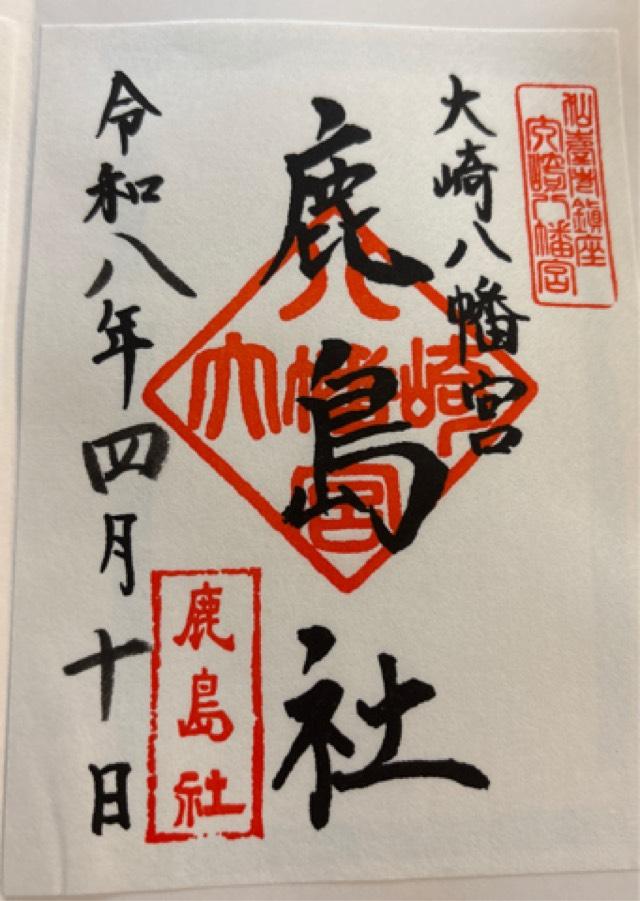 仙臺巷鎮座
大崎八幡宮
大崎八幡宮
鹿島社
八
大幡崎
宮
鹿島社
令和八年四月十日